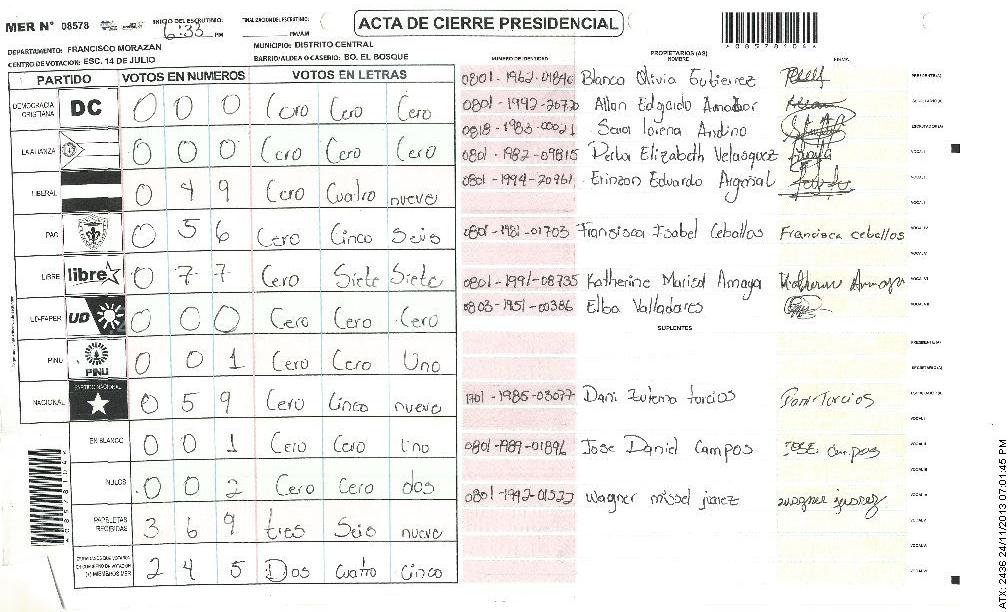 MER N° 08578
INICIO DEL ESCRUTINIO: 6:33 PM
FINALIZACION DEL ESCRUTINIO: PM/AM
ACTA DE CIERRE PRESIDENCIAL
DEPARTAMENTO: FRANCISCO MORAZAN
MUNICIPIO: DISTRITO CENTRAL
CENTRO DE VOTACION: ESC. 14 DE JULIO
BARRIO/ALDEA O CASERIO: BO. EL BOSQUE
PARTIDO VOTOS EN NUMEROS VOTOS EN LETRAS
DEMOCRACIA CRISTIANA DC 0 0 0 Cero Cero Cero
LA ALIANZA 0 0 0 Cero Cero Cero
LIBERAL 0 4 9 Cero Cuatro nueve
PAC 0 5 6 Cero Cinco Seis
LIBRE libre 0 7 7 Cero Siete Siete
UD-FAPER UD 0 0 0 Cero Cero Cero
PINU PINU 0 0 1 Cero Cero Uno
NACIONAL PARTIDO NACIONAL 0 5 9 Cero Cinco nueve
EN BLANCO 0 0 1 Cero Cero Uno
NULOS 0 0 2 Cero Cero dos
PAPELETAS RECIBIDAS 3 6 9 tres Seis nueve
CIUDADANOS QUE VOTARON EN CUADERNO DE VOTACION (+) MIEMBROS MER 2 4 5 Dos cuatro cinco
PROPIETARIOS (AS)
NUMERO DE IDENTIDAD NOMBRE FIRMA
Blanca Olivia Gutierrez PRESIDENTE(A)
0801-1992-20720 Allan Edgardo Amador SECRETARIO(A)
0818-1983-00021 Sara lorena Andino ESCRUTADOR(A)
0801-1982-09815 Perla Elizabeth Velasquez VOCAL I
0801-1994-20961 Erinzon Eduardo Argeñal VOCAL II
VOCAL III
0801-1981-01703 Francisca Isabel Ceballos Francisca ceballos VOCAL IV
VOCAL V
0801-1991-08735 Katherine Marisol Amaya VOCAL VI
0803-1951-00386 Elba Valladares VOCAL VII
SUPLENTES
PRESIDENTE(A)
SECRETARIO(A)
1701-1985-03077 Dani Torcios ESCRUTADOR(A)
VOCAL I
0801-1989-01896 Jose Daniel Campos Jose Campos VOCAL II
VOCAL III
0801-1992-01522 Wagner missel VOCAL IV
VOCAL V
VOCAL VI
VOCAL VII
ATX: 2436 24/11/2013 07:01:45 PM